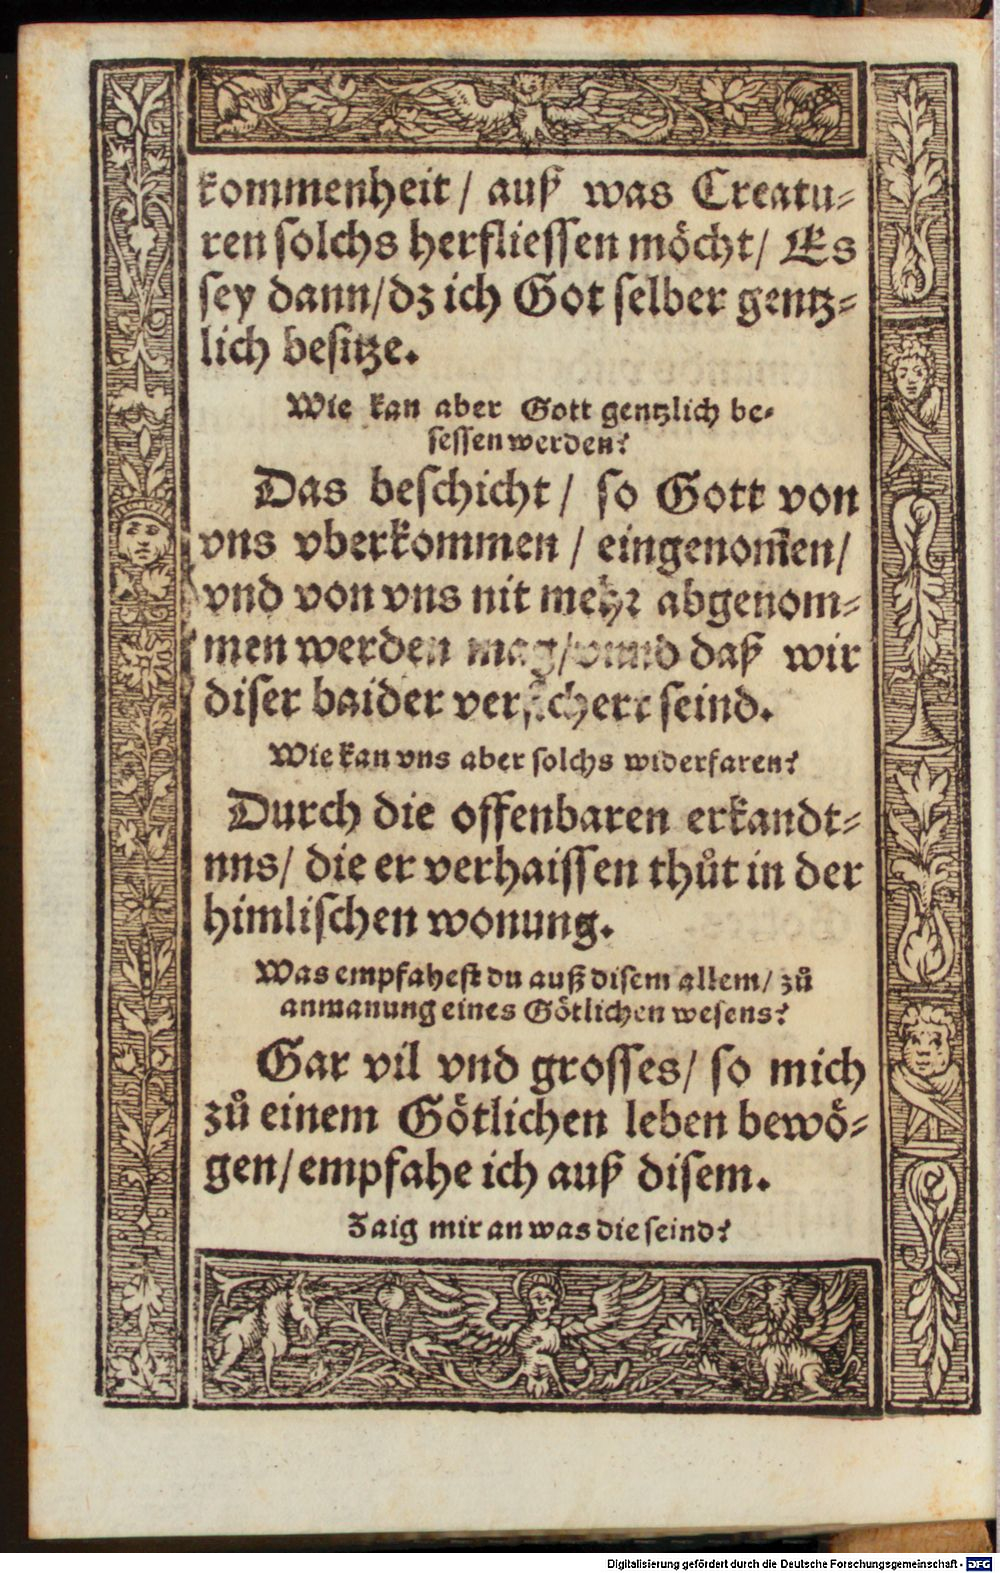 kommenheit / auß was Creatu-
ren solchs herfliessen möcht / Es
sey dann / dz ich Got selber gentz-
lich besitze.
Wie kan aber Gott gentzlich be-
sessen werden?
Das beschicht / so Gott von
vns vberkommen / eingenom̄en /
vnd von vns nit mehr abgenom-
men werden mag / vnnd daß wir
diser baider versichert seind.
Wie kan vns aber solchs widerfaren?
Durch die offenbaren erkandt-
nns / die er verhaissen thůt in der
himlischen wonung.
Was empfahest du auß disem allem / zů
anmanung eines Götlichen wesens?
Gar vil vnd grosses / so mich
zů einem Götlichen leben bewö-
gen / empfahe ich auß disem.
Zaig mir an was die seind?
Digitalisierung gefördert durch die Deutsche Forschungsgemeinschaft - DFG